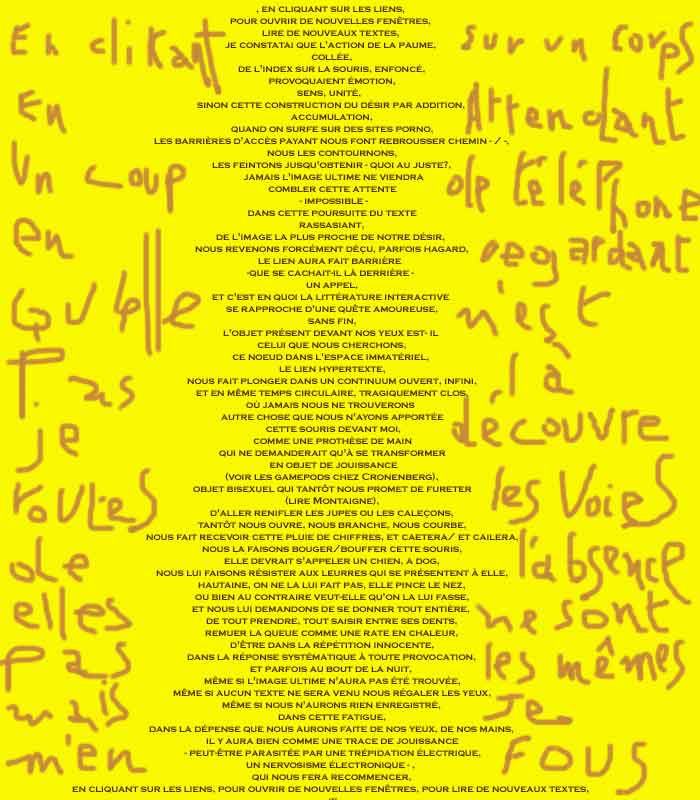 , EN CLIQUANT SUR LES LIENS,
POUR OUVRIR DE NOUVELLES FENÊTRES,
LIRE DE NOUVEAUX TEXTES,
JE CONSTATAI QUE L'ACTION DE LA PAUME,
COLLÉE,
DE L'INDEX SUR LA SOURIS, ENFONCÉ,
PROVOQUAIENT ÉMOTION,
SENS, UNITÉ,
SINON CETTE CONSTRUCTION DU DÉSIR PAR ADDITION,
ACCUMULATION,
QUAND ON SURFE SUR DES SITES PORNO,
LES BARRIÈRES D'ACCÈS PAYANT NOUS FONT REBROUSSER CHEMIN - / -,
NOUS LES CONTOURNONS,
LES FEINTONS JUSQU'OBTENIR - QUOI AU JUSTE?,
JAMAIS L'IMAGE ULTIME NE VIENDRA
COMBLER CETTE ATTENTE
- IMPOSSIBLE -
DANS CETTE POURSUITE DU TEXTE
RASSASIANT,
DE L'IMAGE LA PLUS PROCHE DE NOTRE DÉSIR,
NOUS REVENONS FORCÉMENT DÉÇU, PARFOIS HAGARD,
LE LIEN AURA FAIT BARRIÈRE
-QUE SE CACHAIT-IL LÀ DERRIÈRE -
UN APPEL,
ET C'EST EN QUOI LA LITTÉRATURE INTERACTIVE
SE RAPPROCHE D'UNE QUÊTE AMOUREUSE,
SANS FIN,
L'OBJET PRÉSENT DEVANT NOS YEUX EST- IL
CELUI QUE NOUS CHERCHONS,
CE NOEUD DANS L'ESPACE IMMATÉRIEL,
LE LIEN HYPERTEXTE,
NOUS FAIT PLONGER DANS UN CONTINUUM OUVERT, INFINI,
ET EN MÊME TEMPS CIRCULAIRE, TRAGIQUEMENT CLOS,
OÙ JAMAIS NOUS NE TROUVERONS
AUTRE CHOSE QUE NOUS N'AYONS APPORTÉE
CETTE SOURIS DEVANT MOI,
COMME UNE PROTHÈSE DE MAIN
QUI NE DEMANDERAIT QU'À SE TRANSFORMER
EN OBJET DE JOUISSANCE
(VOIR LES GAMEPODS CHEZ CRONENBERG),
OBJET BISEXUEL QUI TANTÔT NOUS PROMET DE FURETER
(LIRE MONTAIGNE),
D'ALLER RENIFLER LES JUPES OU LES CALEÇONS,
TANTÔT NOUS OUVRE, NOUS BRANCHE, NOUS COURBE,
NOUS FAIT RECEVOIR CETTE PLUIE DE CHIFFRES, ET CAETERA/ ET CAILERA,
NOUS LA FAISONS BOUGER/BOUFFER CETTE SOURIS,
ELLE DEVRAIT S'APPELER UN CHIEN, A DOG,
NOUS LUI FAISONS RÉSISTER AUX LEURRES QUI SE PRÉSENTENT À ELLE,
HAUTAINE, ON NE LA LUI FAIT PAS, ELLE PINCE LE NEZ,
OU BIEN AU CONTRAIRE VEUT-ELLE QU'ON LA LUI FASSE,
ET NOUS LUI DEMANDONS DE SE DONNER TOUT ENTIÈRE,
DE TOUT PRENDRE, TOUT SAISIR ENTRE SES DENTS,
REMUER LA QUEUE COMME UNE RATE EN CHALEUR,
D'ÊTRE DANS LA RÉPÉTITION INNOCENTE,
DANS LA RÉPONSE SYSTÉMATIQUE À TOUTE PROVOCATION,
ET PARFOIS AU BOUT DE LA NUIT,
MÊME SI L'IMAGE ULTIME N'AURA PAS ÉTÉ TROUVÉE,
MÊME SI AUCUN TEXTE NE SERA VENU NOUS RÉGALER LES YEUX,
MÊME SI NOUS N'AURONS RIEN ENREGISTRÉ,
DANS CETTE FATIGUE,
DANS LA DÉPENSE QUE NOUS AURONS FAITE DE NOS YEUX, DE NOS MAINS,
IL Y AURA BIEN COMME UNE TRACE DE JOUISSANCE
- PEUT-ÊTRE PARASITÉE PAR UNE TRÉPIDATION ÉLECTRIQUE,
UN NERVOSISME ÉLECTRONIQUE - ,
QUI NOUS FERA RECOMMENCER,
EN CLIQUANT SUR LES LIENS, POUR OUVRIR DE NOUVELLES FENÊTRES, POUR LIRE DE NOUVEAUX TEXTES,
En clikant sur un corps
En Attendant
Un coup de téléphone
en regardant
Qu'elle n'est
Pas là
je découvre
toutes les voies
de l'absence
elles ne sont
pas les mêmes
mais Je
m'en fous